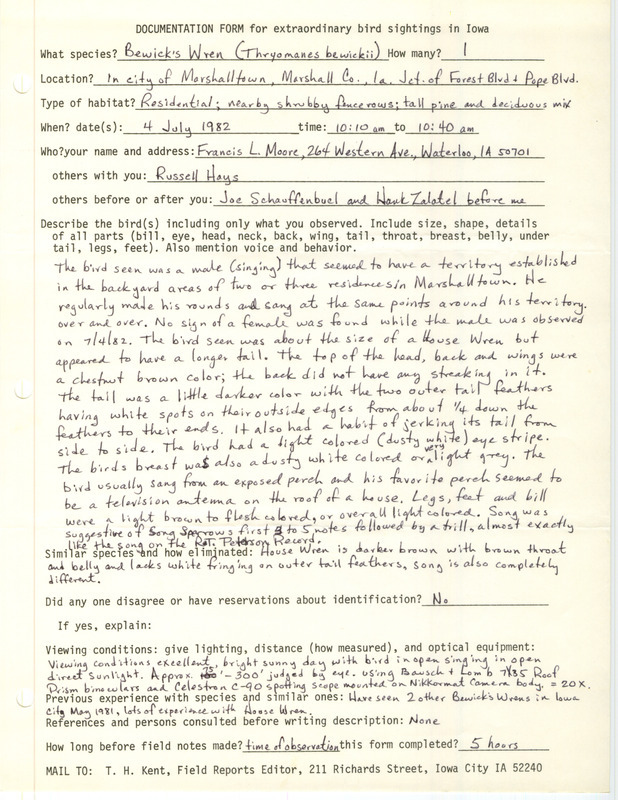 DOCUMENTATION FORM for extraordinary bird sightings in Iowa
What species? Bewick's Wren (Thryomanes bewickii) How many? 1
Location? In city of Marshalltown, Marshall Co., Ia. Jct. of Forest Blvd + Pope Blvd.
Type of habitat? Residential; nearby shrubby fencerows; tall pine and deciduous mix
When? date(s): 4 July 1982 time: 10:10 am to 10:40 am
Who? your name and address: Francis L. Moore, 264 Western Ave., Waterloo, IA 50701
others with you: Russell Hays
others before or after you: Joe Schauffenbuel and Hank Zaletel before me
Describe the bird(s) including only what you observed. Include size, shape, details
of all parts (bill, eye, head, neck, back, wing, tail, throat, breast, belly, under
tail, legs, feet). Also mention voice and behavior.
The bird seen was a male (singing) that seemed to have a territory established
in the backyard areas of two or three residences in Marshalltown. He
regularly made his rounds and sang at the same points around his territory.
over and over. No sign of a female was found while the male was observed
on 7/4/82. The bird seen was about the size of a House Wren but
appeared to have a longer tail. The top of the head, back and wings were
a chestnut brown color; the back did not have any streaking in it.
The tail was a little darker color with the two outer tail feathers
having white spots on their outside edges from about 1/4 down the
feathers to their ends. It also had a habit of jerking its tail from
side to side. The bird had a light colored (dusty white) eye stripe.
The birds breast was also a dusty white colored or very light grey. The
bird usually sang from an exposed perch and his favorite perch seemed to
be a television antenna on the roof of a house. Legs, feet and bill
were a light brown to flesh colored, or overall light colored. Song was
suggestive of Song Sparrows first 3 to 5 notes followed by a trill, almost exactly
like the song on the R.T. Peterson Record.
Similar species and how eliminated: House Wren is darker brown with brown throat
and belly and lacks white fringing on outer tail feathers, song is also completely
different.
Did any one disagree or have reservations about identification? No
If yes, explain:
Viewing conditions: give lighting, distance (how measured), and optical equipment:
Viewing conditions excellent, bright sunny day with bird in open singing in open
direct sunlight. Approx. 75' - 300' judged by eye. using Bausch + Lomb 7X35 Roof
Prism binoculars and Celestron C-90 spotting scope mounted on Nikkormat Camera body. = 20X.
Previous experience with species and similar ones: Have seen 2 other Bewick's Wrens in Iowa
City May 1981, lots of experience with House Wren.
References and persons consulted before writing description: None
How long before field notes made? time of observation this form completed? 5 hours
MAIL TO: T. H. Kent, Field Reports Editor, 211 Richards Street, Iowa City IA 52240